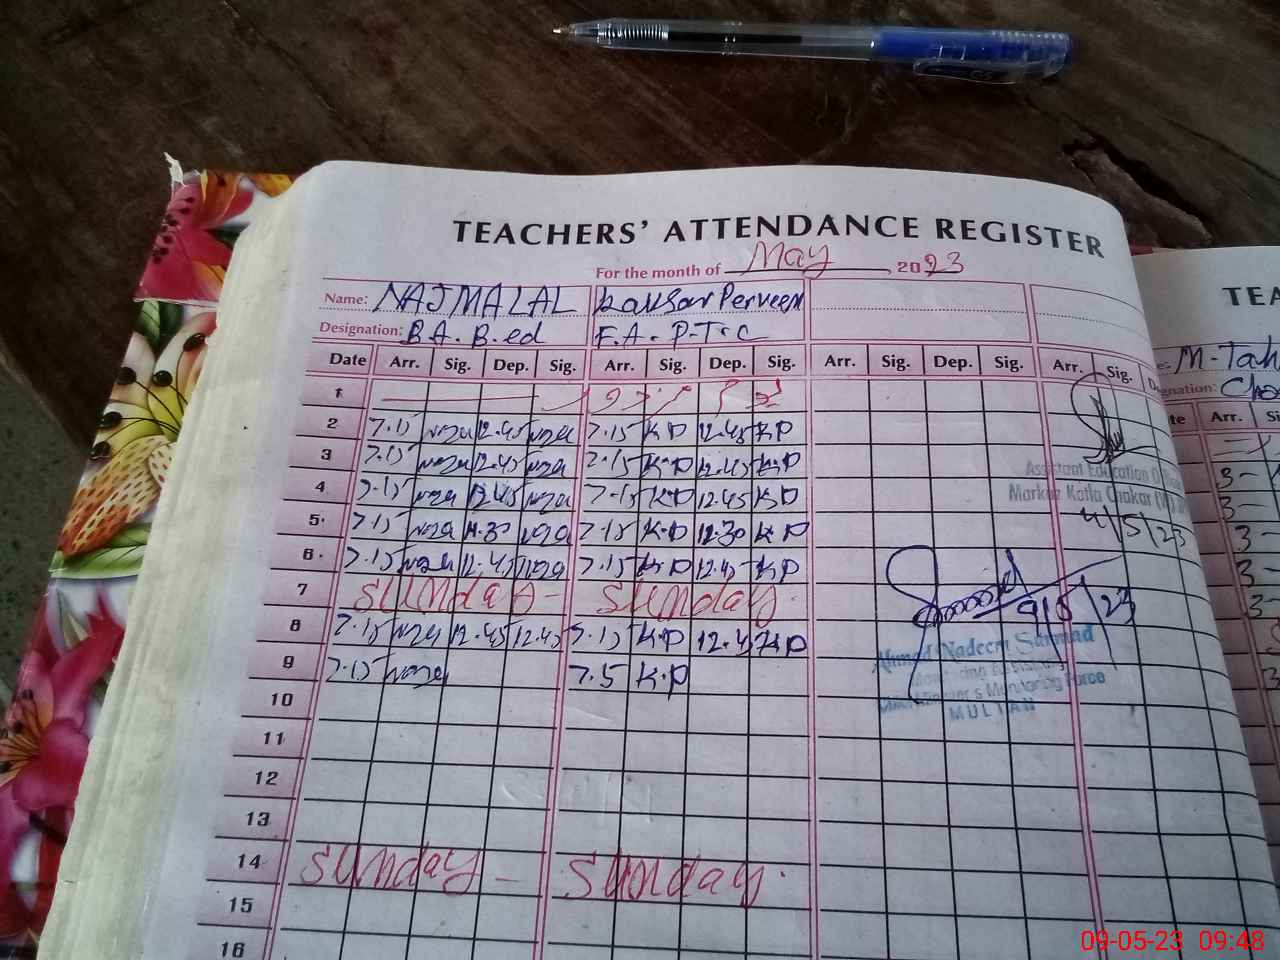 TEACHERS' ATTENDANCE REGISTER
For the month of May, 2023
Name: NAJMALAL Kausar Perveen
Designation: B.A. B.ed F.A. P.T.C
Date Arr. Sig. Dep. Sig. Arr. Sig. Dep. Sig. Arr. Sig. Dep. Sig. Arr. Sig.
1
2 7.15 12.45 7.15 K.P 12.45 K.P
3 7.15 12.45 7.15 K.P 12.45 K.P
4 7.15 12.45 7.15 K.P 12.45 K.P
5. 7.15 7.15 K.P 12.30 K.P
6. 7.15 12.45 7.15 K.P 12.45 K.P
7 SUNDAY - SUNDAY.
8 7.15 12.45 12.45 7.15 K.P 12.4 K.P
9 7.15 7.5 K.P
10
11
12
13
14 SUNDAY - SUNDAY.
15
16
Assistant Education
Markaz Kotla Chakar
4/5/23
9/5/23
Ahmad Nadeem Sarmad
Monitoring Force
MULTAN
TEA
M-Tah
gnation:
te Arr.
3-
3-
3-
3-
3-
GS
09-05-23 09:48